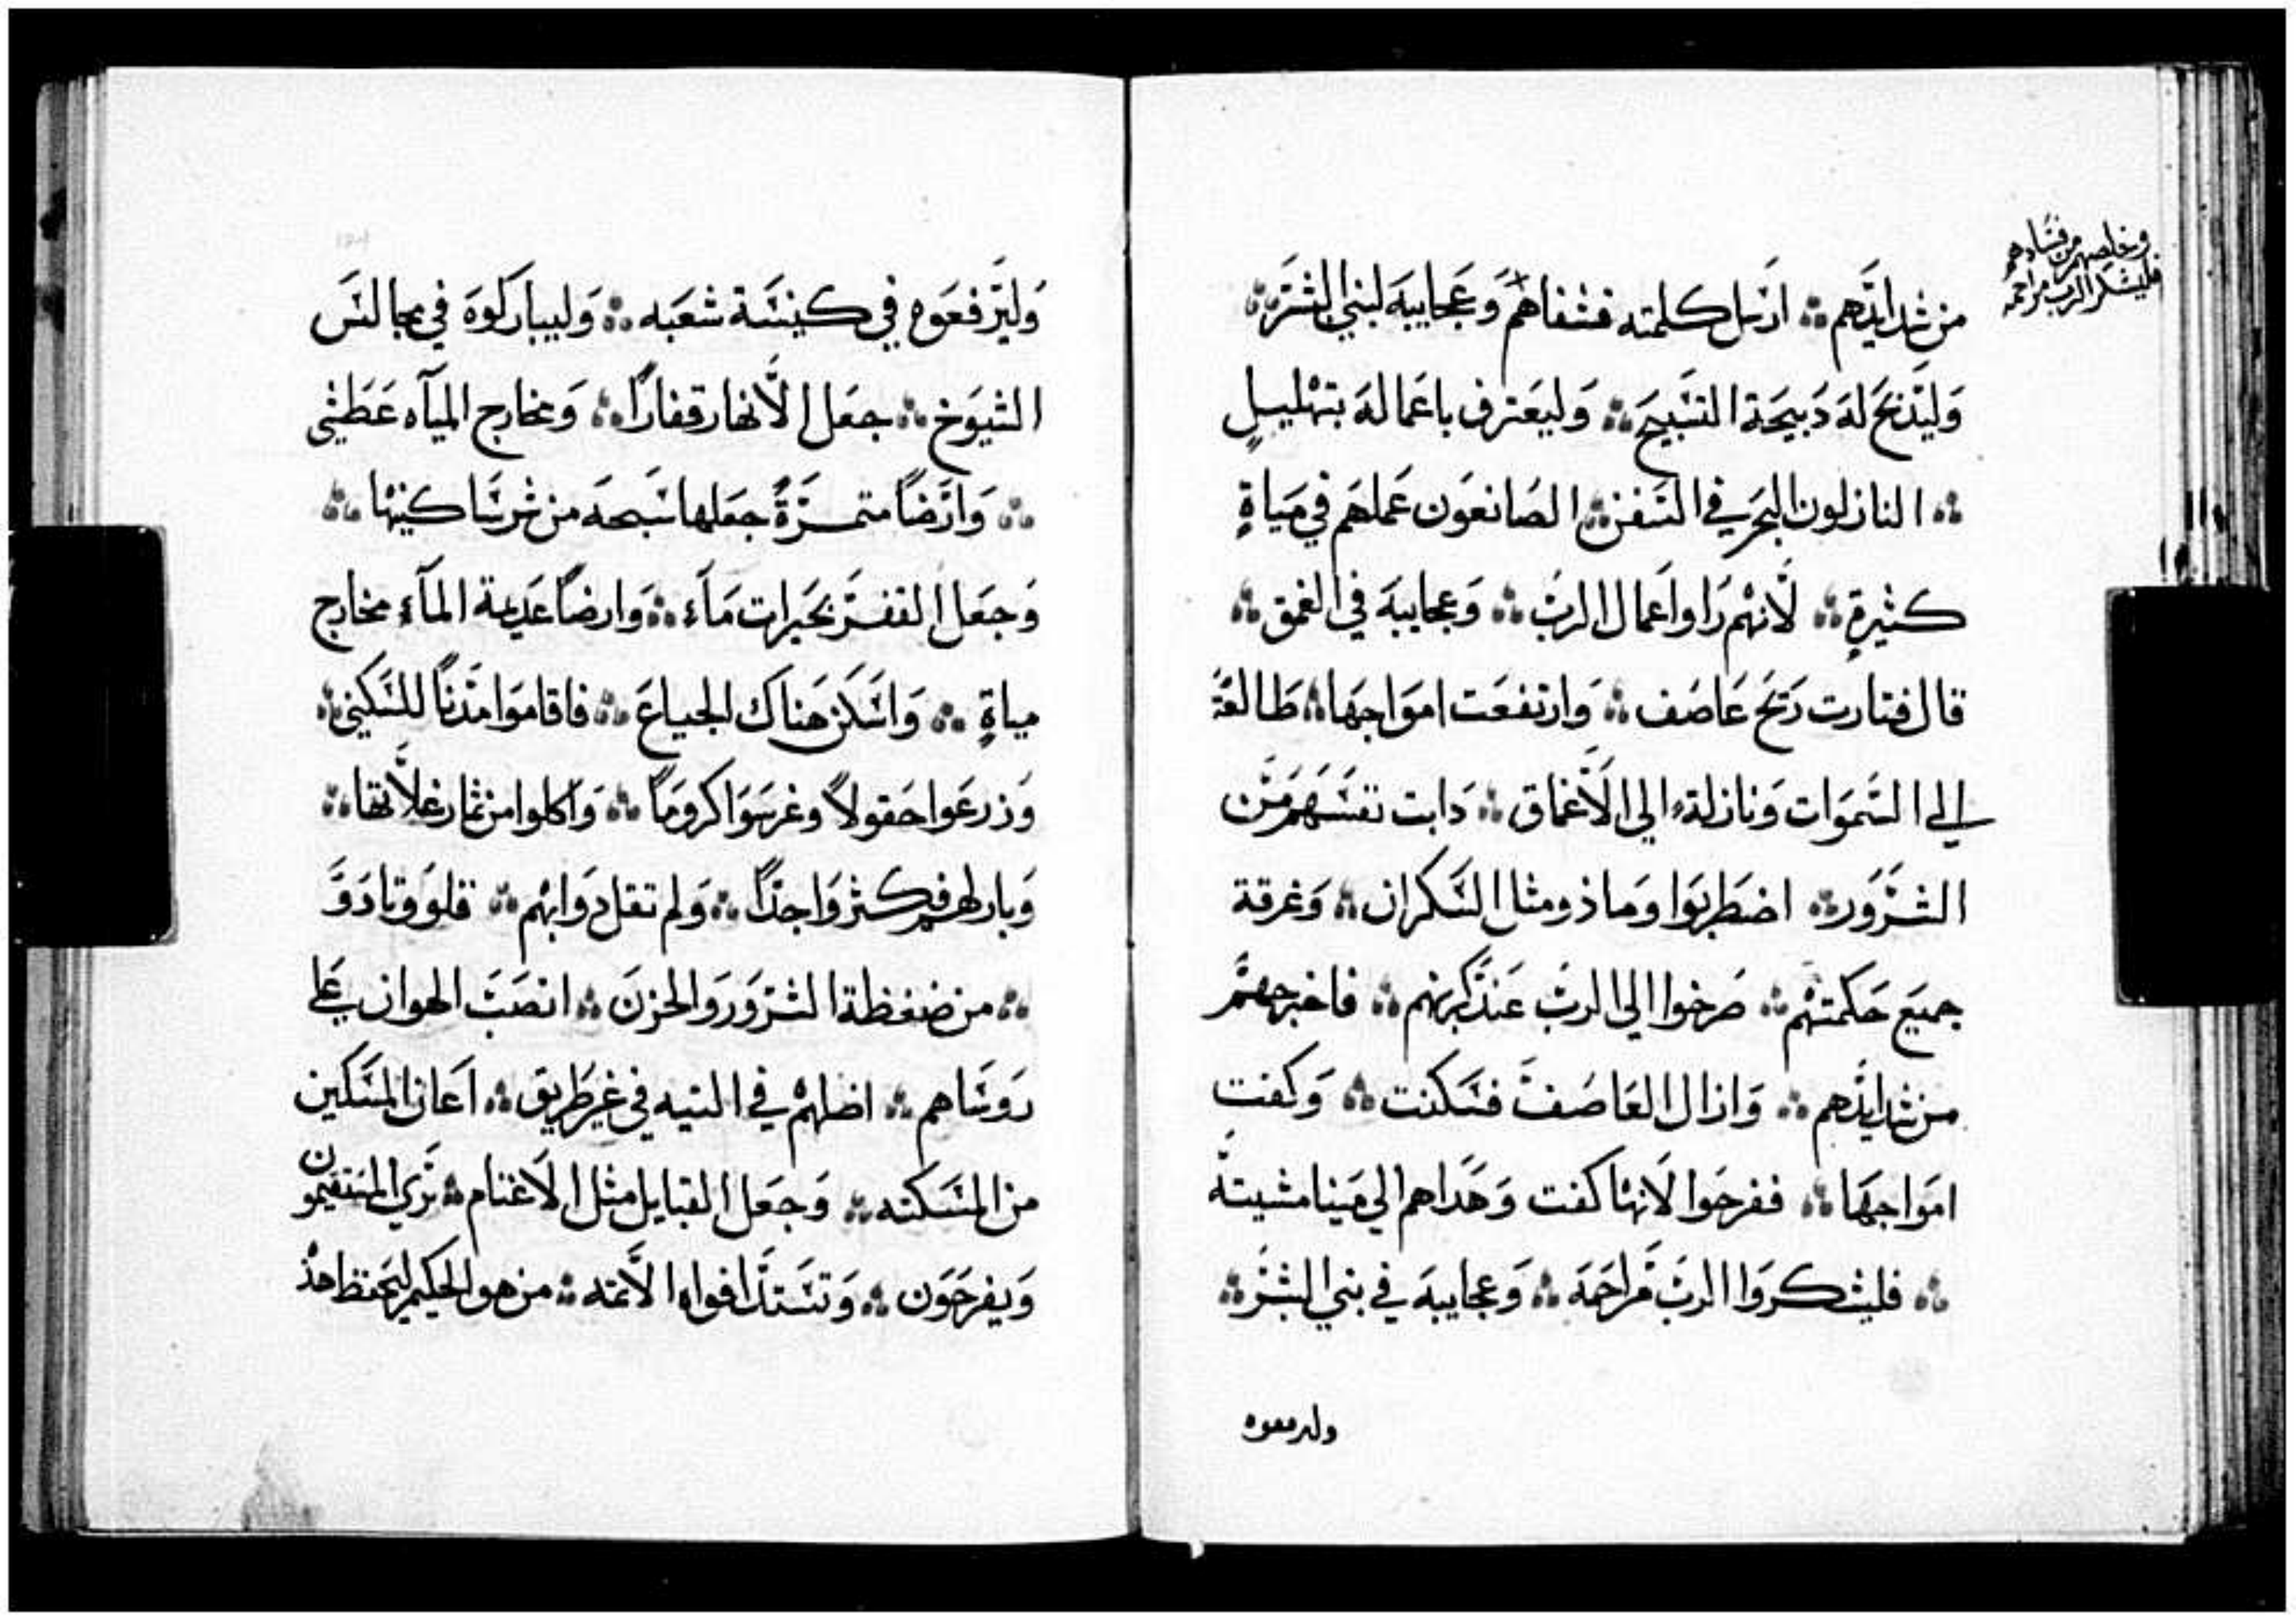 من شدايدهم ۞ ارسل كلمته فشفاهم وعجايبه لبني البشر ۞
وليذبح له دبيحة التسبيح ۞ وليعترف باعماله بتهليل
۞ النازلون البحر في السفن ۞ الصانعون عملهم في مياة
كثيرة ۞ لانهم راوا اعمال الرب ۞ وعجايبه في العمق ۞
قال فتارت ريح عاصف ۞ وارتفعت امواجها ۞ طالعة
الي السموات ونازلة الي الاعماق ۞ دابت نفسهم من
الشرور ۞ اضطربوا وماذو مثل السكران ۞ وغرقة
جميع حكمتهم ۞ صرخوا الي الرب عند كربهم ۞ فاخرجهم
من شدايدهم ۞ وازال العاصف فسكنت ۞ وكفت
امواجها ۞ ففرحوا لانها كفت وهداهم الي مينا مشيته
۞ فليشكروا الرب مراحمه ۞ وعجايبه في بني البشر ۞
ولىرفعوه
وخلصهم من فسادهم
فليشكر الرب مراحمه
وليرفعوه في كنيسة شعبه ۞ وليباركوه في مجالس
الشيوخ ۞ جعل الانهار قفارا ۞ ومخارج المياه عطشي
۞ وارضا متمرة جعلها سبحه من شر ساكنيها ۞
وجعل القفر بحيرات ماء ۞ وارضا عديمة الماء مخارج
مياة ۞ واسكن هناك الجياع ۞ فاقاموا مدنا للسكني ۞
وزرعوا حقولا وغرسوا كروما ۞ واكلوا من ثمار غلاتها ۞
وبارلهم فكثروا جدا ۞ ولم تقل دوابهم ۞ قلو وتادوو
۞ من ضغظة الشرور والحزن ۞ انصب الهوان علي
روساهم ۞ اضلهم في التيه في غير طريق ۞ اعان المسكين
من المسكنه ۞ وجعل القبايل مثل الاغنام ۞ تري المستقيمون
ويفرحون ۞ وتستد افواه الاثمه ۞ من هو الحكيم ليحفظ هذ